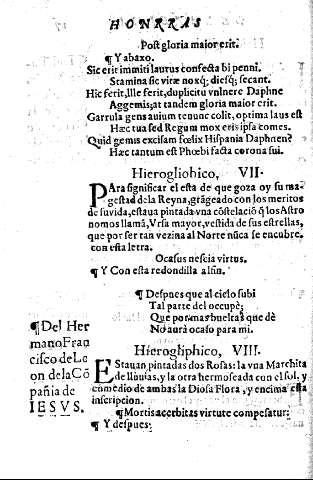 HONRRAS
Post gloria maior erit.
¶ Y abaxo.
Sic erit immiti laurus confecta bi penni.
Stamina sic vitæ noxq; diesq; secant.
Hic ferit, Ille ferit, duplicitu vnlnere Daphne
Aggemis, at tandem gloria maior erit.
Garrula gens auium tenunc colit, optima laus est
Hæc tua sed Regum mox eris ipsa comes.
Quid gemis excisam fœlix Hispania Daphnen?
Hæc tantum est Phœbi facta corona sui.
Hierogliohico, VII.
PAra significar el esta de que goza oy su ma
gestad de la Reyna, grãgeado con los meritos
de su vida, estaua pintada vna cõstelaciõ q̃ los Astro
nomos llamã, Vrsa mayor, vestida de sus estrellas,
que por ser tan vezina al Norte nũca se encubre.
con esta letra.
Ocasus nescia virtus.
¶ Y Con esta redondilla al fin.
¶ Despues que al cielo subi
Tal parte del occupè;
Que por mas bueltas que dè
No aurà ocaso para mi.
¶ Del Her
mano Fran
cisco de Le
on de la Cõ
pañia de
IESVS.
Hierogliphico, VIII.
EStauan pintadas dos Rosas: la vna Marchita
de lluuias, y la otra hermoseada con el sol, y
comedio de ambas la Diosa Flora, y encima esta
inscripcion.
¶ Mortis acerbitas virtute compesatur:
¶ Y despues: